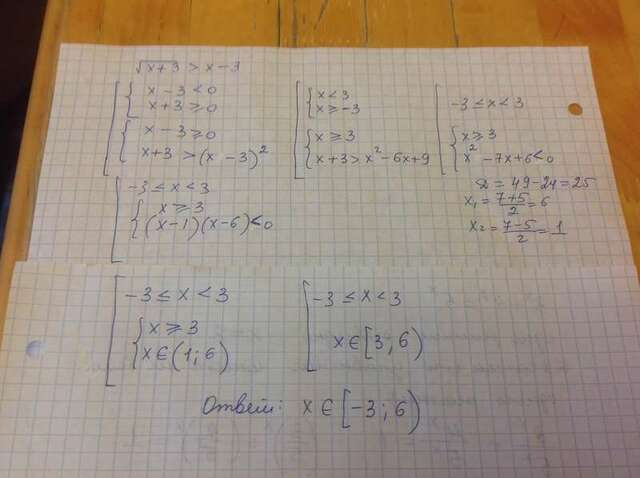 √x+3 > x-3
x-3<0
x+3≥0
x-3≥0
x+3 >(x-3)²
x<3
x≥-3
x≥3
x+3>x²-6x+9
-3≤x<3
x≥3
x²-7x+6<0
D = 49-24=25
x₁=7+5/2=6
x₂=7-5/2=1
-3≤x<3
x≥3
(x-1)(x-6)<0
-3≤x<3
x≥3
x∈(1;6)
-3≤x<3
x∈[3;6)
Ответ: x∈[-3;6)